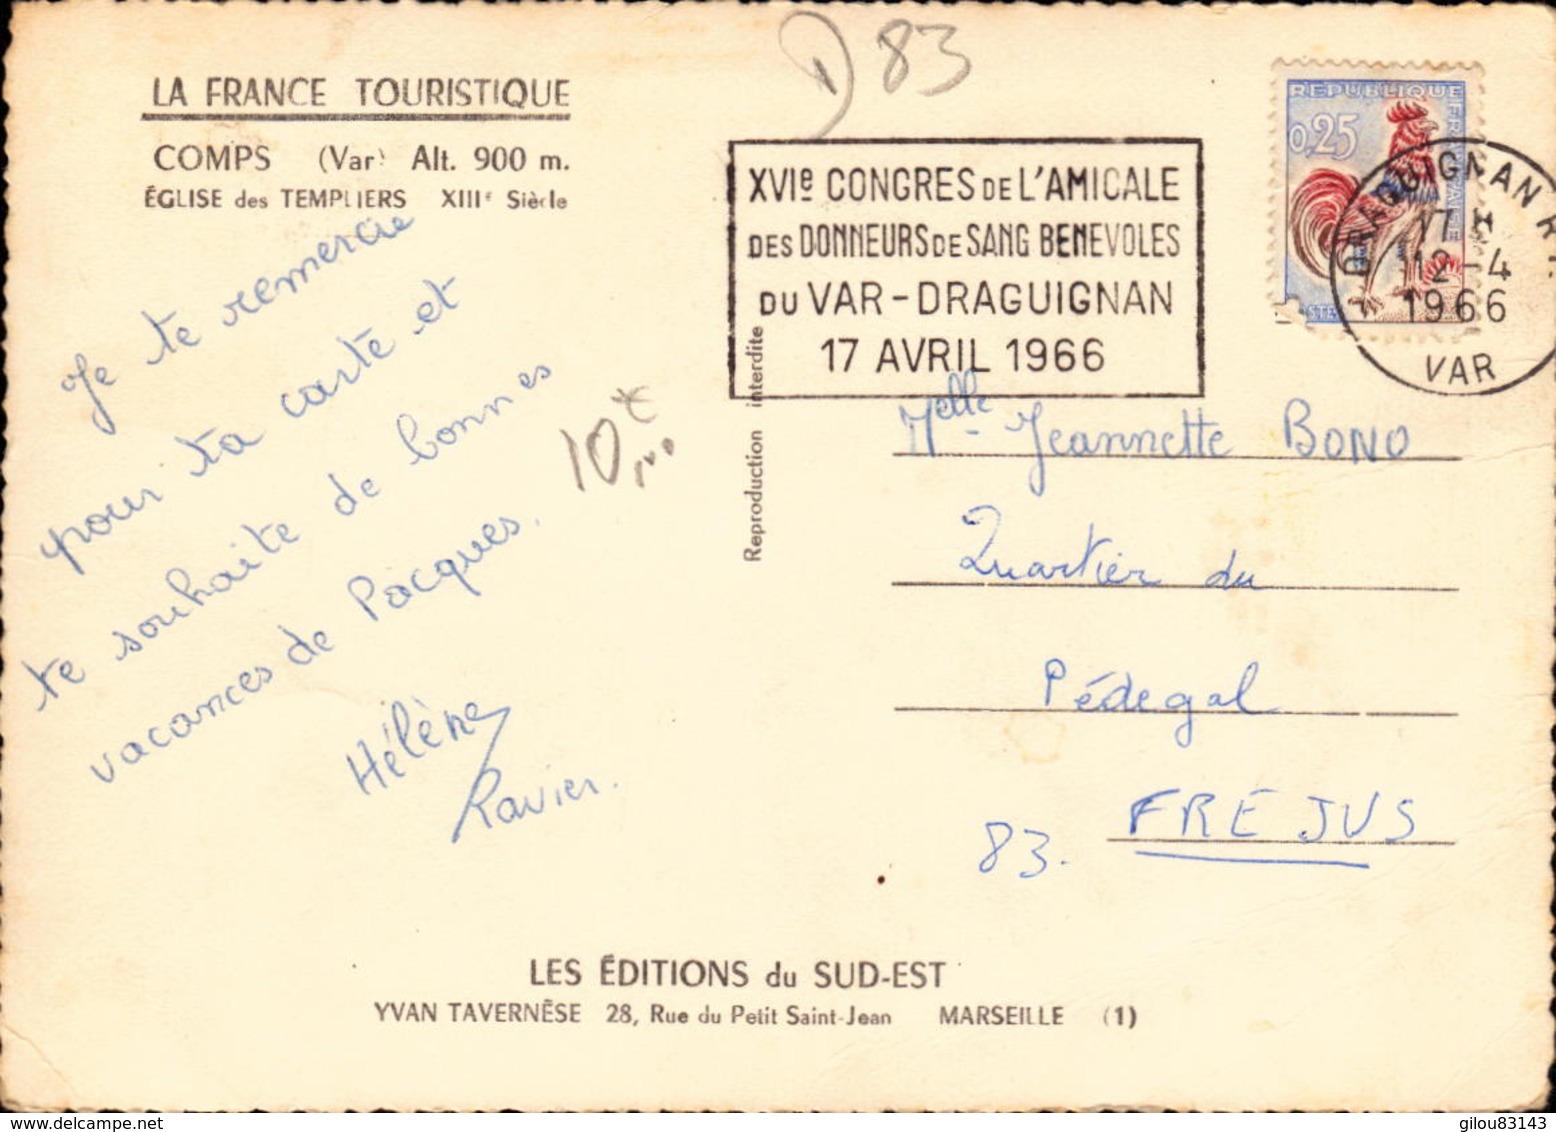 D 83
LA FRANCE TOURISTIQUE
COMPS (Var) Alt. 900 m.
ÉGLISE des TEMPLIERS XIIIe Siècle
Je te remercie
pour ta carte et
te souhaite de bonnes
vacances de Pacques.
Hélène
Ravier.
10
Reproduction interdite
XVIe CONGRES DE L'AMICALE
DES DONNEURS DE SANG BENEVOLES
DU VAR - DRAGUIGNAN
17 AVRIL 1966
REPUBLIQUE FRANÇAISE
0,25
DRAGUIGNAN R.P.
17 H
12-4
1966
VAR
Melle Jeannette BONO
Quartier du
Pédegal
83. FREJUS
LES ÉDITIONS du SUD-EST
YVAN TAVERNÈSE 28, Rue du Petit Saint-Jean MARSEILLE (1)
delcampe.net
gilou83143